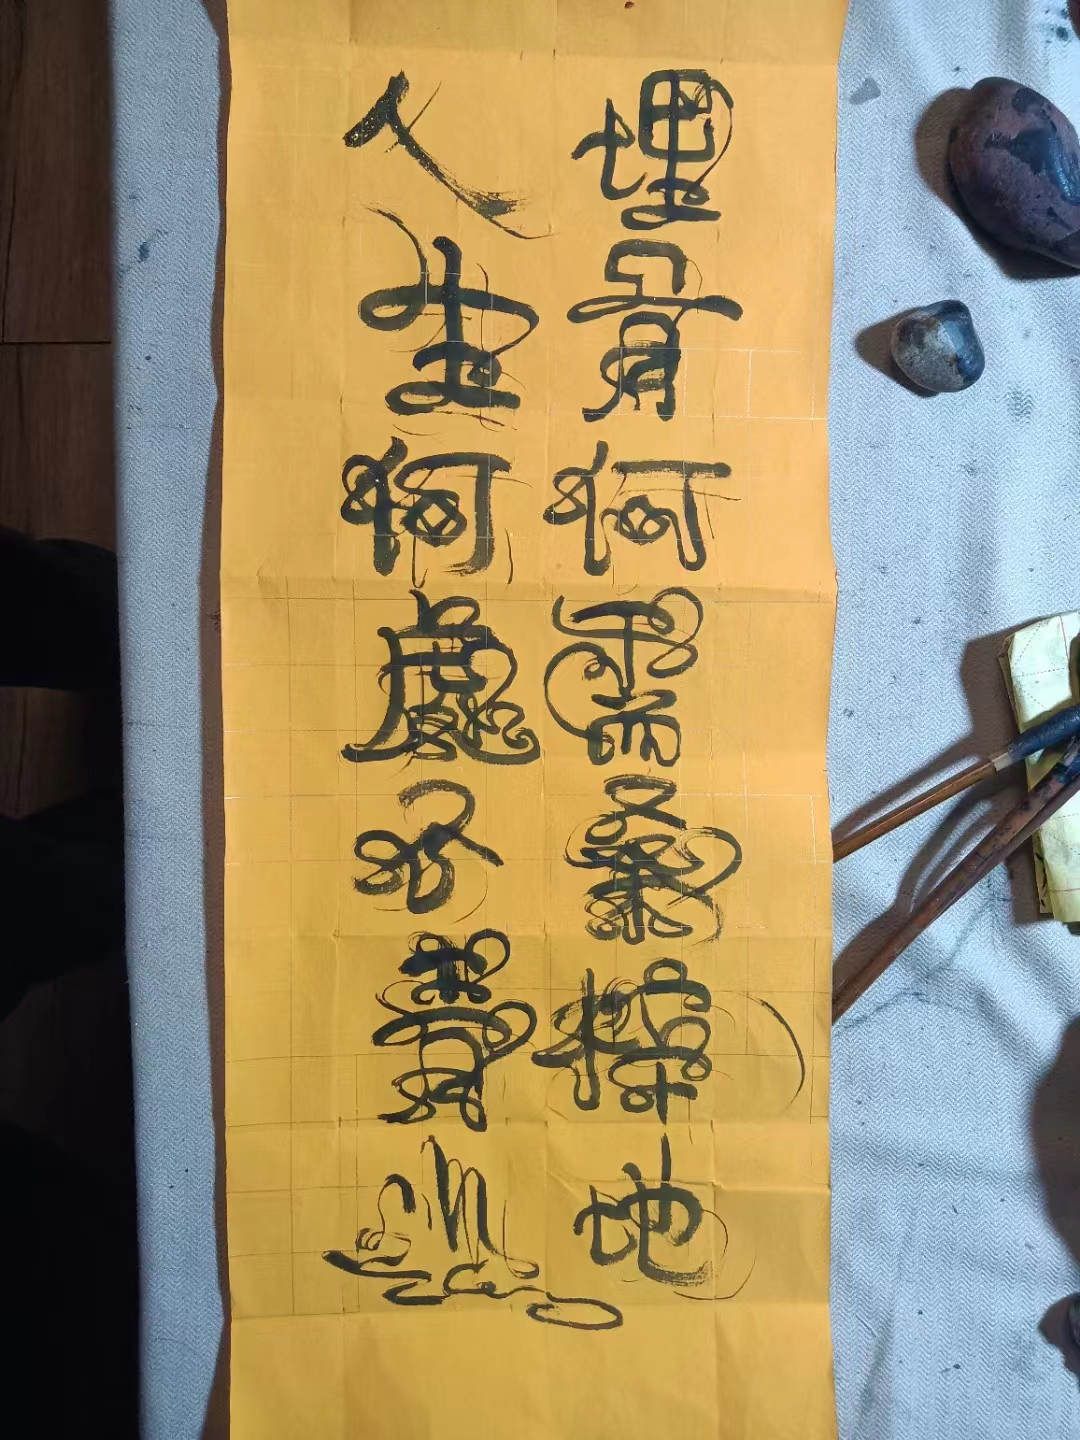 埋骨何需桑梓地
人生何處不青山